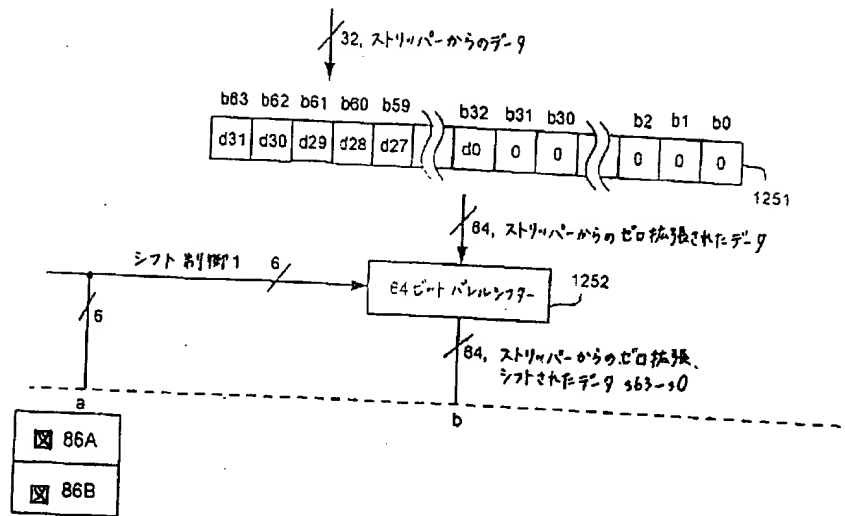 32, ストリッパーからのデータ
b63 b62 b61 b60 b59 b32 b31 b30 b2 b1 b0
d31 d30 d29 d28 d27 d0 0 0 0 0 0
1251
64, ストリッパーからのゼロ拡張されたデータ
シフト制御1 6
64ビットバレルシフター
1252
6
64, ストリッパーからのゼロ拡張、
シフトされたデータ s63-s0
a
b
図 86A
図 86B